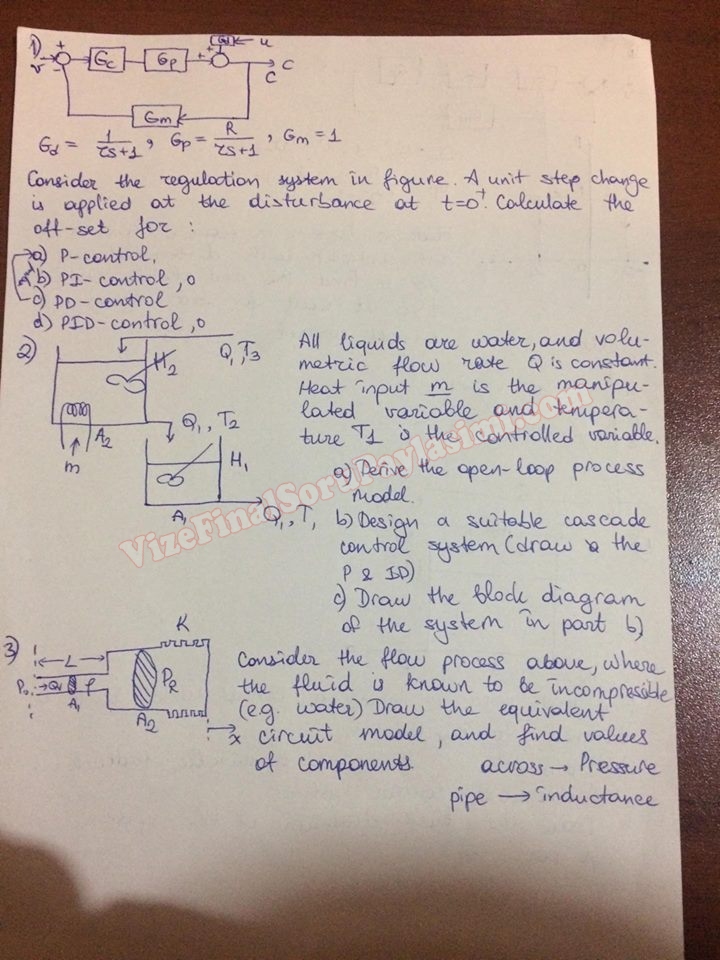 1)
r + - Gc Gp + + Gd u C
C
Gm
Gd = 1/τs+1 , Gp = R/τs+1 , Gm = 1
Consider the regulation system in figure. A unit step change
is applied at the disturbance at t=0⁺. Calculate the
off-set for :
a) P-control,
b) PI-control, 0
c) PD-control
d) PID-control, 0
2)
H2 Q, T3
A2 Q1, T2
m
H1
A1 Q1, T1
All liquids are water, and volu-
metric flow rate Q is constant.
Heat input m is the manipu-
lated variable and tempera-
ture T1 is the controlled variable.
a) Derive the open-loop process
model.
b) Design a suitable cascade
control system (draw the
P & ID)
c) Draw the block diagram
of the system in part b)
VizeFinalSoruPaylasimi.com
3)
K
L
Q P2
A1 A2
x
Consider the flow process above, where
the fluid is known to be incompressible
(e.g. water) Draw the equivalent
circuit model, and find values
of components.
across → Pressure
pipe → inductance